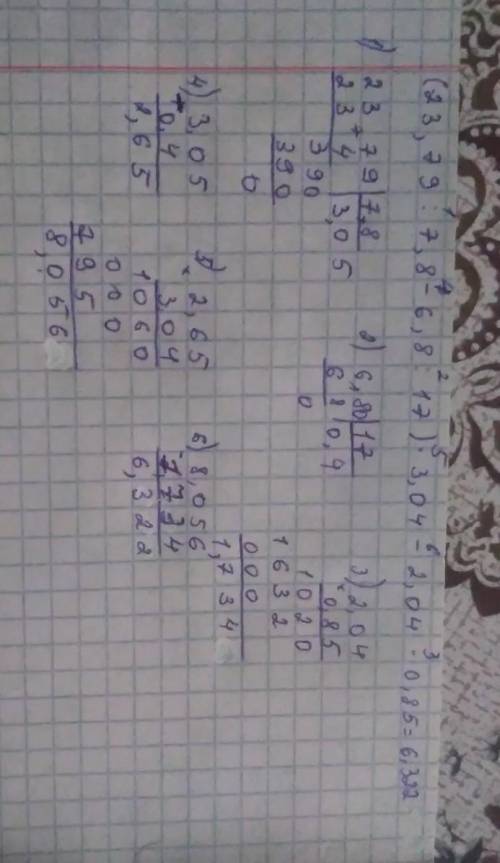 (23,79 : 7,8 - 6,8 : 17) · 3,04 - 2,04 · 0,85 = 6,322
1 4 2 5 6 3
1) 23,79 | 7,8
23 4 | 3,05
390
390
0
2) 6,80 | 17
6 8 | 0,4
0
3) 2,04
× 0,85
1020
1632
000
1,734
4) 3,05
- 0,4
2,65
5) 2,65
× 3,04
1060
000
795
8,056
6) 8,056
- 1,734
6,322